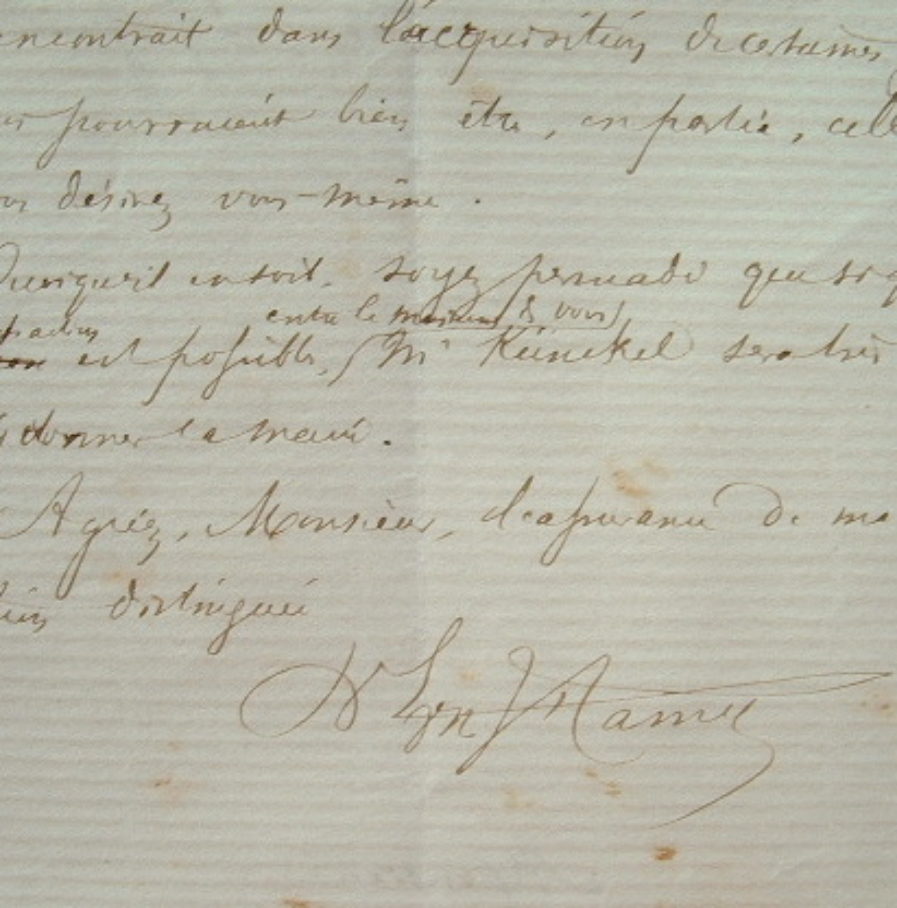 encontrait dans l'acquisition de certaines
pourraient bien être, en partie, cell
désirez vous-même.
Quoiqu'il en soit, soyez persuadé que si q
entre le museum & vous
est possible, Mr Künckel sera très
donner la main.
Agréez, Monsieur, l'assurance de ma
distinguée
Dr